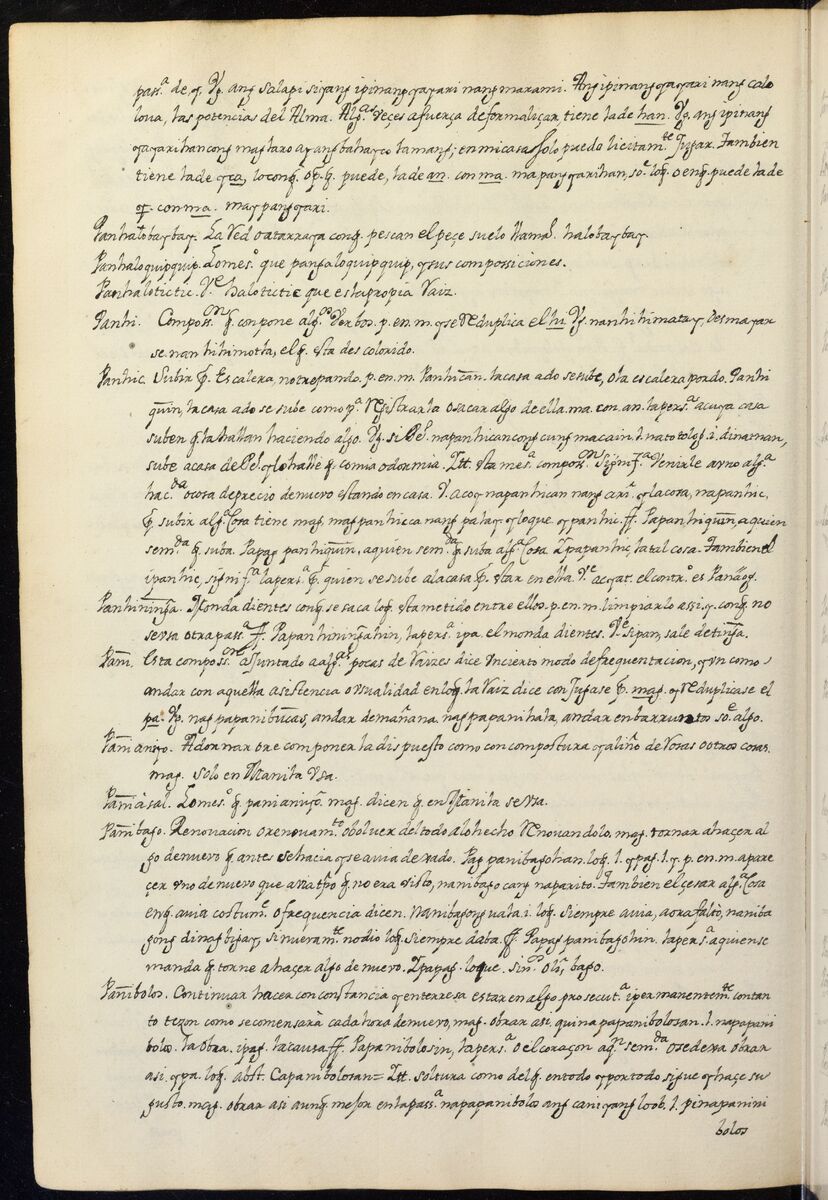 pass.ᵃ de. y. Vg. ang salapi siyang ipinangyayari nang marami. Ang ipinangyayari nang calo
lova, las potencias del Alma. Alg.ᵃˢ veçes a fuerça de formaliçar tiene la de han. Vg. ang ipinang
yayarihan cong magtaro ay ang bahay co lamang; en mi casa solo puedo licitam.ᵗᵉ Jugar. Tambien
tiene la de yca, lo conq. op. q. puede, la de an. con ma. mapangyarihan, so.ᵉ loq. o enq. puede la de
y. con ma. maypangyari.
Panhalobaybay. La Red o atarraya conq. pescan el peçe suelo llamal. halobaybay
Panhaloquipquip. Lo mes.º que pangaloquipquip, y sus composiciones.
Panhalotictic. V.ᵉ halotictic que es la propia Raiz.
Panhi. Composs.ᵒⁿ q. conpone alg.ᵒˢ Verbos. p. en. m. y se Reduplica el hi Vg. nanhihimatay, Desmayar
se. nanhihimotla, el q. esta descolorido.
Panhic. Subir p. Escalera, no trepando. p. en. m. Panhican. la casa ado se sube, o la escalera por do. Panhi
quin, la casa ado se sube como p.ᵃ Registrarla o sacar algo de ella. ma. con. an. la pers.ᵃ a cuya casa
suben q. la hallan haciendo algo. Vg. si P.ᵉ napanhican cong cungmacain. l. natotolog. i. dinatnan,
sube a casa de P.ᵉ y lo hallè q. comia o dormia. Itt. esta mes.ᵃ compos.ᵒⁿ Signif.ᵃ Venirle a uno alg.ᵃ
hac.ᵈᵃ o cosa de precio de nuevo estando en casa. V. aco y napanhican nang ari. y la cosa, napanhic,
q. subir alg.ᵃ Cosa tiene mag. magpanhic ca nang palay. y lo que. ypanhic. ff. Papanhiquin, a quien
sem.ᵈᵃ q. suba. Papag panhiquin, a quien sem.ᵈᵃ q. suba alg.ᵃ Cosa Ypapanhic, la tal cosa. Tambien el
ipanhic, signif.ᵃ la pers.ᵃ p. quien se sube a la casa p. estar en ella. V.ᵉ acyat. el contr.º es Panaog.
Panhininga. Monda dientes conq. se saca loq. esta metido entre ellos. p. en. m. limpiarlo assi. y. conq. no
se usa otra pass.ᵃ ff. Papanhiningahin, la pers.ᵃ ipa. el monda dientes. V.ᵉ sipan, sale de tinga.
Pani. Esta composs.ᵒⁿ ajuntado a alg.ᵃˢ pocas de Raizes dice un cierto modo de frequentacion, y un como
andar con aquella asistencia o usualidad en loq. la Raiz dice con Jugase p. mag. y Reduplicase el
pa. Vg. nagpapanibucas, andar de mañana. nagpapanihala, andar en barruntos so.ᵉ algo.
Panianiyo. Adornar o recomponer la dispuesto como con compostura y aliño de Rosas o otras cosas.
mag. solo en Manila usa.
Paniasal. Lo mes.º q. panianiyo. mag. dicen q. en Manila se usa.
Panibago. Renovacion o renovam.ᵗᵒ o bolver del todo a lo hecho Renovandolo. mag. tornar a haçer al
go de nuevo q. antes se hacia y se avia dexado. Pag panibagohan. loq. l. ypag. l. y. p. en. m. apare
çer uno de nuevo que avia tpo q. no era visto, nanibago cang naparito. Tambien el çesar alg.ᵃ Cosa
enq. avia costum.ᵉ o frequencia dicen. nanibagong uala. i. loq. siempre avia, aora faltò, naniba
gong dinagbigay, si nueram.ᵗᵉ no dio loq. siempre daba. ff. Papagpanibagohin. la pers.ᵃ a quien se
manda q. torne a haçer algo de nuevo. Ypapag. lo que. sin.ᵒˢ olı̃, bago.
Panibolos. Continuar hacer con constancia y enterresa estar en algo prosecut.ᵃ i permanentem.ᵗᵉ con tan
to tezon como se comensarà cada hora de nuevo, mag. obrar asi, quinapapanibolosan. l. napapani
bolos. la obra. ipag. la causa ff. Papanibolosin, la pers.ᵃ o el coraçon aq.ⁿ sem.ᵈᵃ o se dexa obrar
asi. ypa. loq. abst. Capanibolosan= Itt. soltura como del q. en todo y por todo sigue y haçe su
gusto. mag. obrar asi aunq. mejor en la pass.ᵃ napapanibolos ang caniyang loob. l. pinapanini
bolos